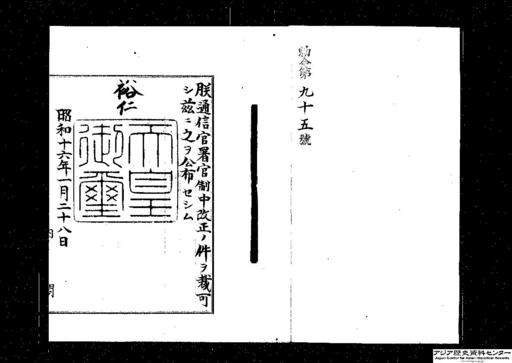 勅令第九十五號
朕通信官署官制中改正ノ件ヲ裁可
シ茲ニ之ヲ公布セシム
裕仁
天皇
御璽
昭和十六年一月二十八日
内閣
アジア歴史資料センター
Japan Center for Asian Historical Records